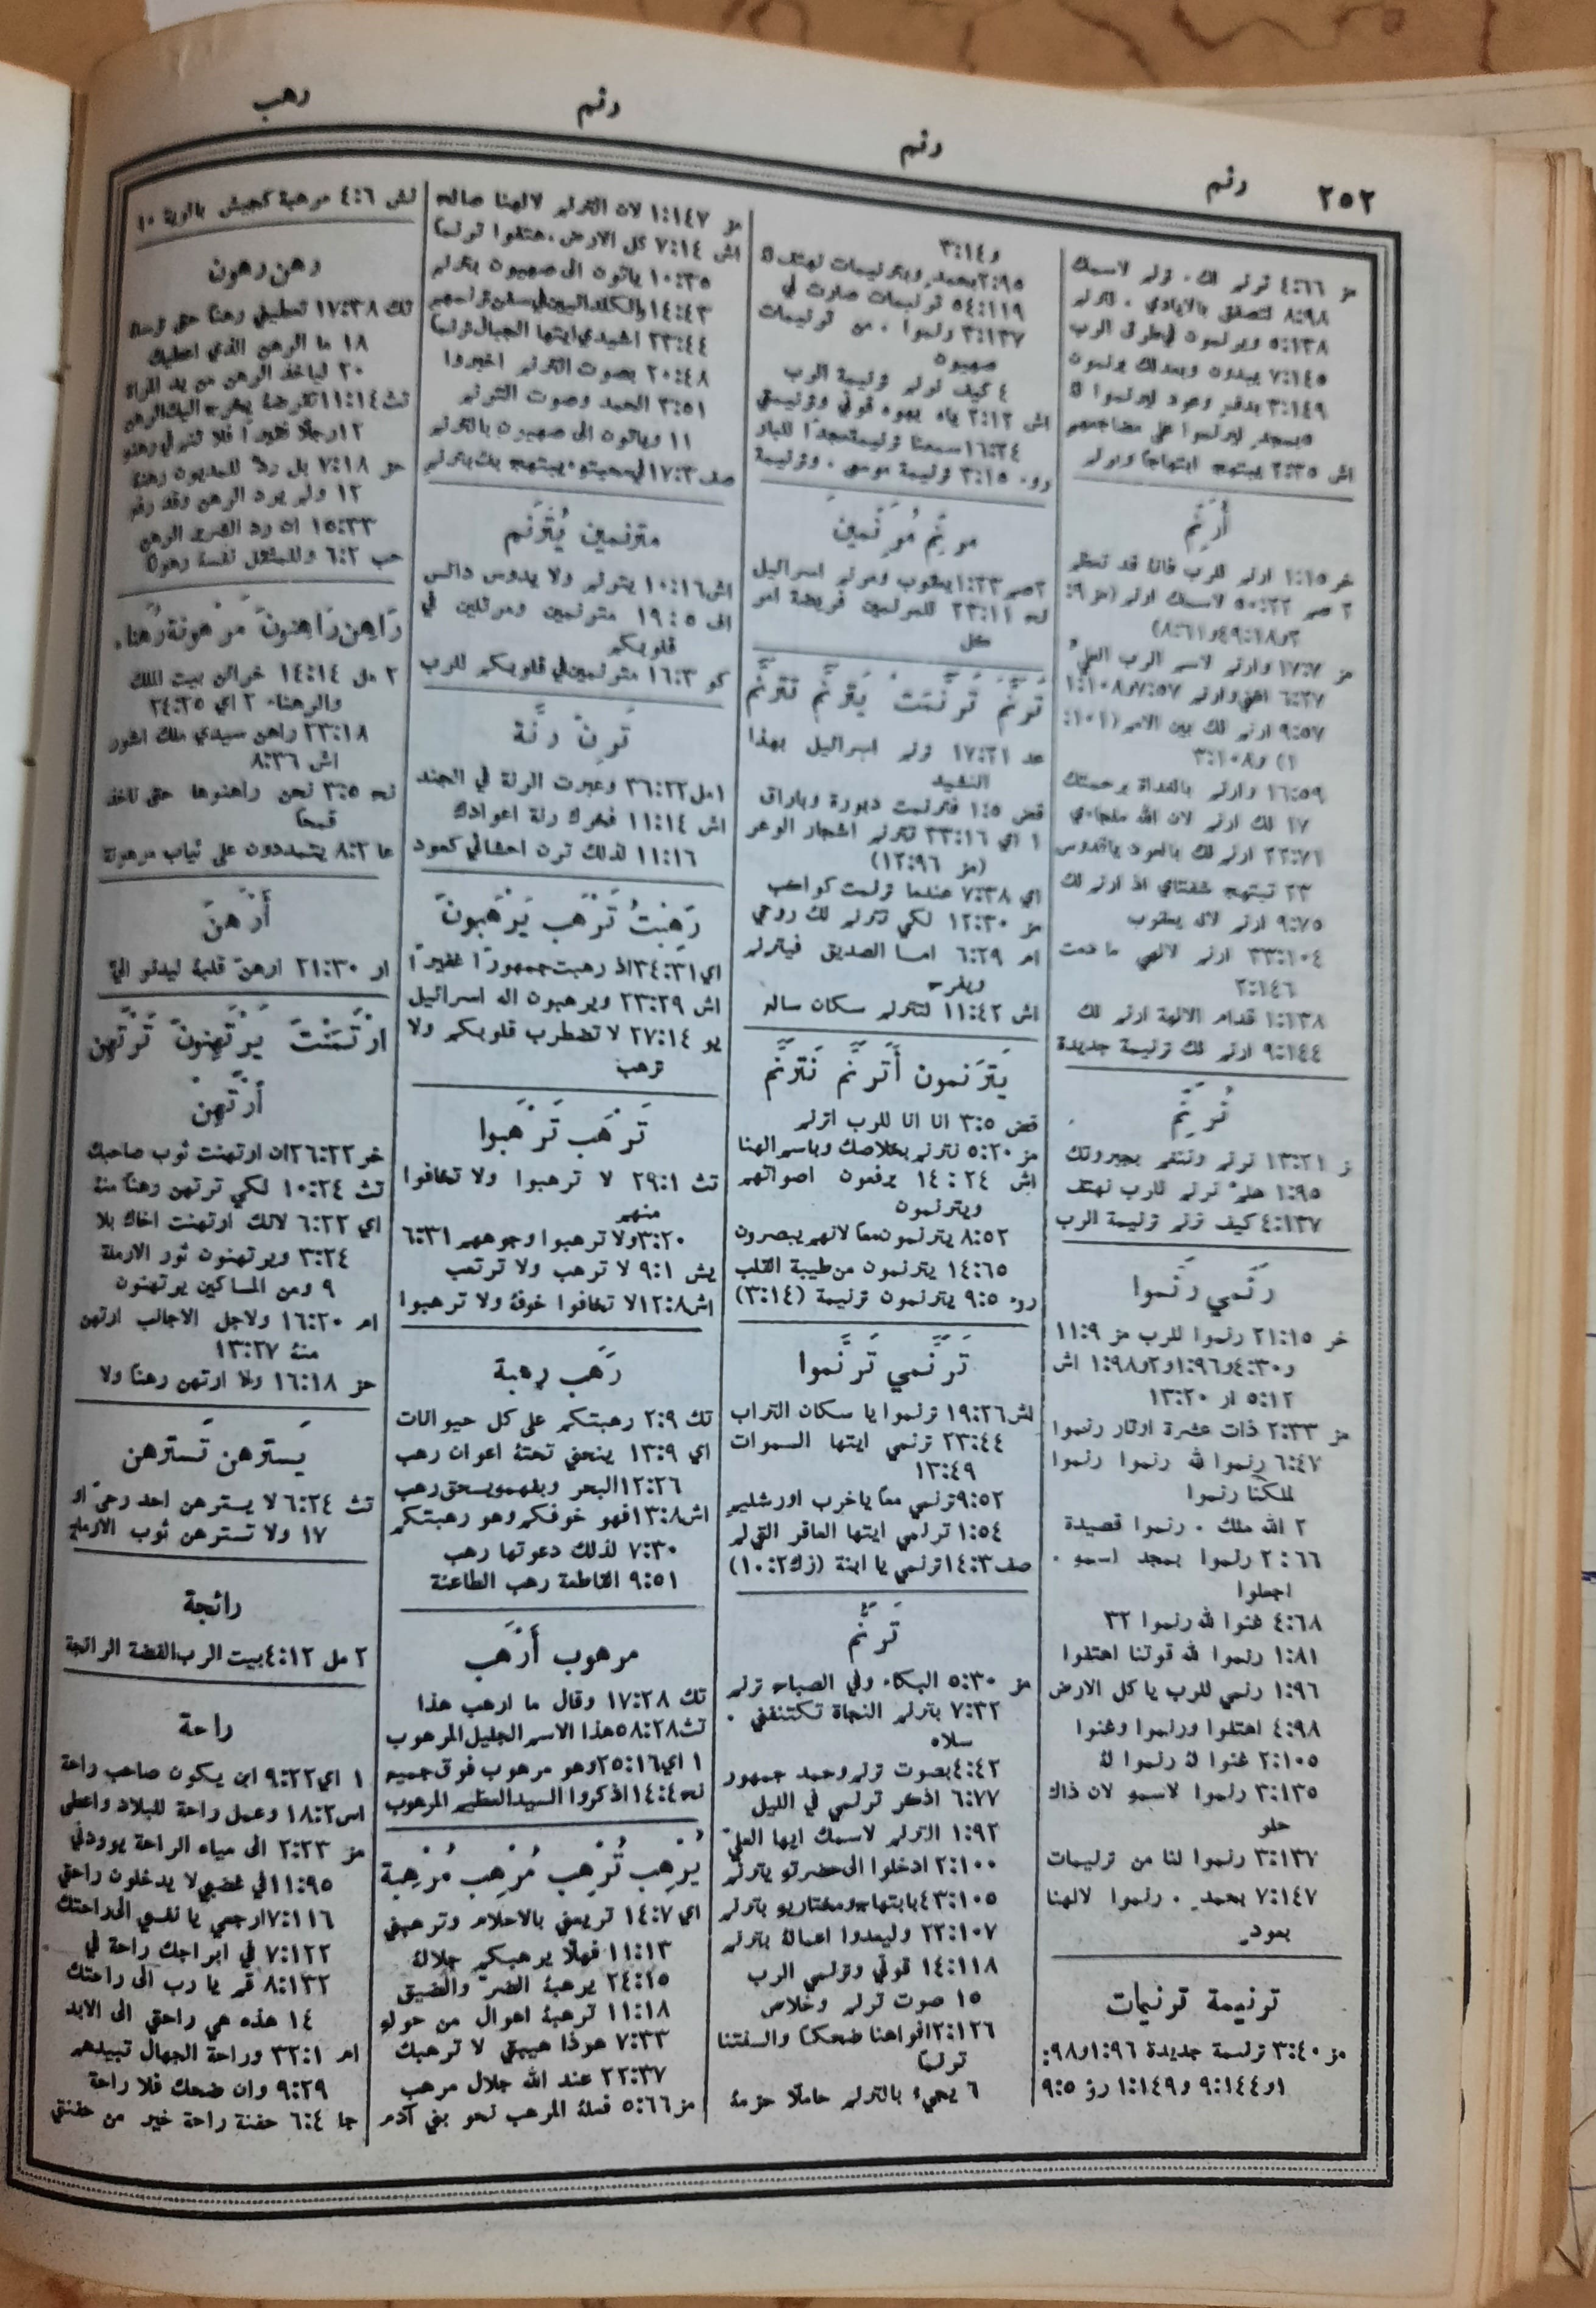 ٢٥٢
رنم
رنم
رنم
رهب
مز ٤:٦٦ ترنم لك. ترنم لاسمك
٨:٩٨ لتصفق بالايادي. لترنم
٥:١٣٨ ويرنمون في طرق الرب
٧:١٤٥ يبدون وبعدلك يرنمون
٣:١٤٩ بدف وعود ليرنموا لهُ
٥ بمجد ليرنموا على مضاجعهم
اش ٢:٣٥ يبتهج ابتهاجًا ويرنم
أُرَنِّم
خر ١:١٥ ارنم للرب فانهُ قد تعظم
٢ صم ٥٠:٢٢ لاسمك ارنم (مز ٩:
٢ و٤٩:١٨ و٨:٦١)
مز ١٧:٧ وارنم لاسم الرب العليّ
٦:٢٧ اغني وارنم ٧:٥٧ و١:١٠٨
٩:٥٧ ارنم لك بين الامم (١٠١:
١) و٣:١٠٨
١٦:٥٩ وارنم بالغداة برحمتك
١٧ لك ارنم لان الله ملجاءي
٢٢:٧١ ارنم لك بالعود ياقدوس
٢٣ تبتهج شفتاي اذ ارنم لك
٩:٧٥ ارنم لاله يعقوب
٣٣:١٠٤ ارنم لالهي ما دمت
٢:١٤٦
١:١٣٨ قدام الالهة ارنم لك
٩:١٤٤ ارنم لك ترنيمة جديدة
نُرَنِّم
ز ١٣:٢١ نرنم وننغم بجبروتك
١:٩٥ هلمّ نرنم للرب نهتف
٤:١٣٧ كيف نرنم ترنيمة الرب
رَنِّمي رَنِّموا
خر ٢١:١٥ رنموا للرب مز ١١:٩
و٤:٣٠ و١:٩٦ و٢ و١:٩٨ اش
٥:١٢ ار ١٣:٢٠
مز ٢:٣٣ ذات عشرة اوتار رنموا
٦:٤٧ رنموا لله رنموا رنموا
لملكنا رنموا
٢ الله ملك. رنموا قصيدة
٢:٦٦ رنموا بمجد اسمه.
اجعلوا
٤:٦٨ غنوا لله رنموا ٣٢
١:٨١ رنموا لله قوتنا اهتفوا
١:٩٦ رنمي للرب يا كل الارض
٤:٩٨ اهتفوا ورنموا وغنوا
٢:١٠٥ غنوا لهُ رنموا لهُ
٣:١٣٥ رنموا لاسمهِ لان ذاك
حلو
٣:١٣٧ رنموا لنا من ترنيمات
٧:١٤٧ بحمد. رنموا لالهنا
بعود
ترنيمة ترنيمات
مز ٣:٤٠ ترنيمة جديدة ١:٩٦ و٩٨:
١ و٩:١٤٤ و١:١٤٩ رؤ ٩:٥
و٣:١٤
٢:٩٥ بحمد وبترنيمات نهتف لهُ
٥٤:١١٩ ترنيمات صارت لي
٣:١٣٧ رنموا. من ترنيمات
صهيون
٤ كيف نرنم ترنيمة الرب
اش ٢:١٢ ياه يهوه قوتي وترنيمتي
١٦:٢٤ سمعنا ترنيمة مجدًا للبار
رو. ٣:١٥ ترنيمة موسى. وترنيمة
مرنّم مُرَنِّمين
٢ صم ١:٢٣ يعقوب ومرنم اسرائيل
نح ٢٣:١١ للمرنمين فريضة امر
كل
تَرَنَّمَ تَرَنَّمَتْ يَتَرَنَّم تترنّم
عد ١٧:٢١ ترنم اسرائيل بهذا
النشيد
قض ١:٥ فترنمت دبورة وباراق
١ اي ٣٣:١٦ تترنم اشجار الوعر
(مز ١٢:٩٦)
اي ٧:٣٨ عندما ترنمت كواكب
مز ١٢:٣٠ لكي تترنم لك روحي
ام ٦:٢٩ اما الصديق فيترنم
ويفرح
اش ١١:٤٢ لتترنم سكان سالع
يَتَرَنمون أَتَرَنَّم نَتَرَنَّم
قض ٣:٥ انا انا للرب اترنم
مز ٥:٢٠ نترنم بخلاصك وباسم الهنا
اش ١٤:٢٤ يرفعون اصواتهم
ويترنمون
٨:٥٢ يترنمون معًا لانهم يبصرون
١٤:٦٥ يترنمون من طيبة القلب
رو. ٩:٥ يترنمون ترنيمة (٣:١٤)
تَرَنَّمي تَرَنَّموا
اش ١٩:٢٦ ترنموا يا سكان التراب
٢٣:٤٤ ترنمي ايتها السموات
١٣:٤٩
٩:٥٢ ترنمي معًا ياخرب اورشليم
١:٥٤ ترنمي ايتها العاقر التي لم
صف ١٤:٣ ترنمي يا ابنة (زك ١٠:٢)
تَرَنُّم
مز ٥:٣٠ البكاء وفي الصباح ترنم
٧:٣٢ بترنم النجاة تكتنفني.
سلاه
٤:٤٢ بصوت ترنم وحمد جمهور
٦:٧٧ اذكر ترنمي في الليل
١:٩٢ الترنم لاسمك ايها العليّ
٢:١٠٠ ادخلوا الى حضرته بترنم
٤٣:١٠٥ بابتهاج ومختاريه بترنم
٢٢:١٠٧ وليعدوا اعمالهُ بترنم
١٤:١١٨ قوتي وترنمي الرب
١٥ صوت ترنم وخلاص
٢:١٢٦ افواهنا ضحكًا والسنتنا
ترنمًا
٦ يجيءُ بالترنم حاملًا حزمهُ
مز ١:١٤٧ لان الترنم لالهنا صالح
اش ٧:١٤ كل الارض. هتفوا ترنمًا
١٠:٣٥ ياتون الى صهيون بترنم
١٤:٤٣ والكلدانيين في سفن ترنمهم
٢٣:٤٤ اشيدي ايتها الجبال ترنمًا
٢٠:٤٨ بصوت الترنم اخبروا
٣:٥١ الحمد وصوت الترنم
١١ وياتون الى صهيون بالترنم
صف ١٧:٣ في محبته. يبتهج بك بترنم
مترنمين يُتَرَنَّم
اش ١٠:١٦ يترنم ولا يدوس دائس
اف ١٩:٥ مترنمين ومرتلين في
قلوبكم
كو ١٦:٣ مترنمين في قلوبكم للرب
تَرِنّ رنَّة
١ مل ٣٦:٢٢ وعبرت الرنة في الجند
اش ١١:١٤ فخرك رنة اعوادك
١١:١٦ لذلك ترن احشائي كعود
رَهِبْتُ تَرْهَب يَرْهَبونَ
اي ٣٤:٣١ اذ رهبت جمهورًا غفيرًا
اش ٢٣:٢٩ ويرهبون اله اسرائيل
يو ٢٧:١٤ لا تضطرب قلوبكم ولا
ترهب
تَرْهَب تَرْهَبوا
تث ٢٩:١ لا ترهبوا ولا تخافوا
منهم
٣:٢٠ ولا ترهبوا وجوههم ٦:٣١
يش ٩:١ لا ترهب ولا ترتعب
اش ١٢:٨ لا تخافوا خوفهُ ولا ترهبوا
رَهَب رهبة
تك ٢:٩ رهبتكم على كل حيوانات
اي ١٣:٩ ينحني تحتهُ اعوان رهب
١٢:٢٦ البحر وبفهمه يسحق رهب
اش ١٣:٨ فهو خوفكم وهو رهبتكم
٧:٣٠ لذلك دعوتها رهب
٩:٥١ القاطعة رهب الطاعنة
مرهوب أَرْهَب
تك ١٧:٢٨ وقال ما ارهب هذا
تث ٥٨:٢٨ هذا الاسم الجليل المرهوب
١ اي ٢٥:١٦ وهو مرهوب فوق جميع
نح ١٤:٤ اذكروا السيد العظيم المرهوب
يُرْهِب تُرْهِب مُرْهِب مُرْهِبة
اي ١٤:٧ تريعني بالاحلام وترهبني
١١:١٣ فهلّا يرهبكم جلالهُ
٢٤:١٥ يرهبهُ الضرّ والضيق
١١:١٨ ترهبهُ اهوال من حوله
٧:٣٣ هوذا هيبتي لا ترهبك
٢٢:٣٧ عند الله جلال مرهب
مز ٥:٦٦ فعلهُ المرهب نحو بني آدم
نش ٤:٦ مرهبة كجيش بالوية ١٠
رهن رهون
تك ١٧:٣٨ تعطيني رهنًا حتى ترسلهُ
١٨ ما الرهن الذي اعطيك
٢٠ لياخذ الرهن من يد المراة
١٢ رجلًا فقيرًا فلا تنم في رهنه
حز ٧:١٨ بل ردّ للمديون رهنهُ
١٢ ولم يرد الرهن وقد رفع
١٥:٣٣ ان رد الشرير الرهن
حب ٦:٢ وللمثقل نفسهُ رهونًا
رَاهِن رَاهِنونَ مَرْهونة رُهَناء
٢ مل ١٤:١٤ خزائن بيت الملك
والرهناء ٢ اي ٢٤:٢٥
٢٣:١٨ راهن سيدي ملك اشور
اش ٨:٣٦
نح ٣:٥ نحن راهنوها حتى ناخذ
قمحًا
عا ٨:٢ يتمددون على ثياب مرهونة
أَرْهَنَ
ار ٢١:٣٠ ارهن قلبهُ ليدنو اليّ
ارْتَهَنْتَ يَرْتَهِنونَ تَرْتَهِن
أَرْتَهِنْ
خر ٢٦:٢٢ ان ارتهنت ثوب صاحبك
تث ١٠:٢٤ لكي ترتهن رهنًا منهُ
اي ٦:٢٢ لانك ارتهنت اخاك بلا
٣:٢٤ ويرتهنون ثور الارملة
٩ ومن المساكين يرتهنون
ام ١٦:٢٠ ولاجل الاجانب ارتهن
منهُ ١٣:٢٧
حز ١٦:١٨ ولا ارتهن رهنًا ولا
يَسترهن تَسترهن
تث ٦:٢٤ لا يسترهن احد رحىً او
١٧ ولا تسترهن ثوب الارملة
رائجة
٢ مل ٤:١٢ بيت الرب الفضة الرائجة
راحة
١ اي ٩:٢٢ ابن يكون صاحب راحة
اس ١٨:٢ وعمل راحة للبلاد واعطى
مز ٢:٢٣ الى مياه الراحة يوردني
١١:٩٥ في غضبي لا يدخلون راحتي
٧:١١٦ ارجعي يا نفسي الى راحتك
٧:١٢٢ في ابراجك راحة في
٨:١٣٢ قم يا رب الى راحتك
١٤ هذه هي راحتي الى الابد
ام ٣٢:١ وراحة الجهال تبيدهم
٩:٢٩ وان ضحك فلا راحة
جا ٦:٤ حفنة راحة خير من حفنتي